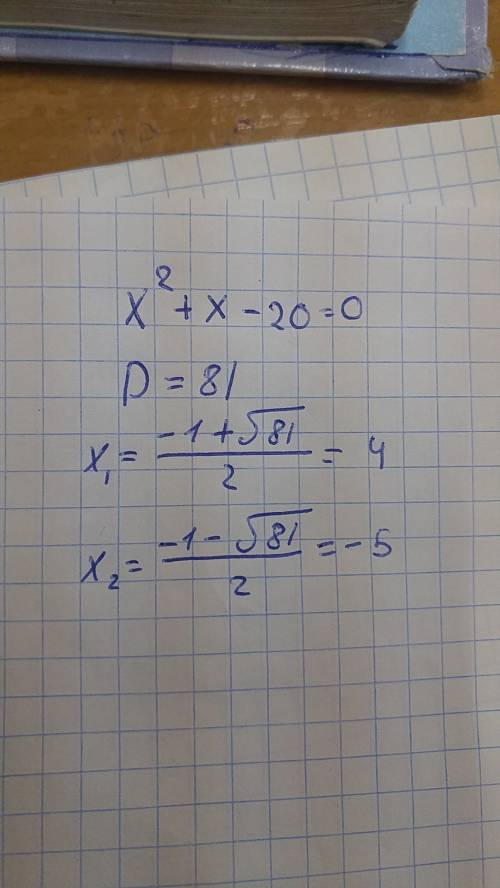 x² + x - 20 = 0
D = 81
x₁ = (-1 + √81)/2 = 4
x₂ = (-1 - √81)/2 = -5